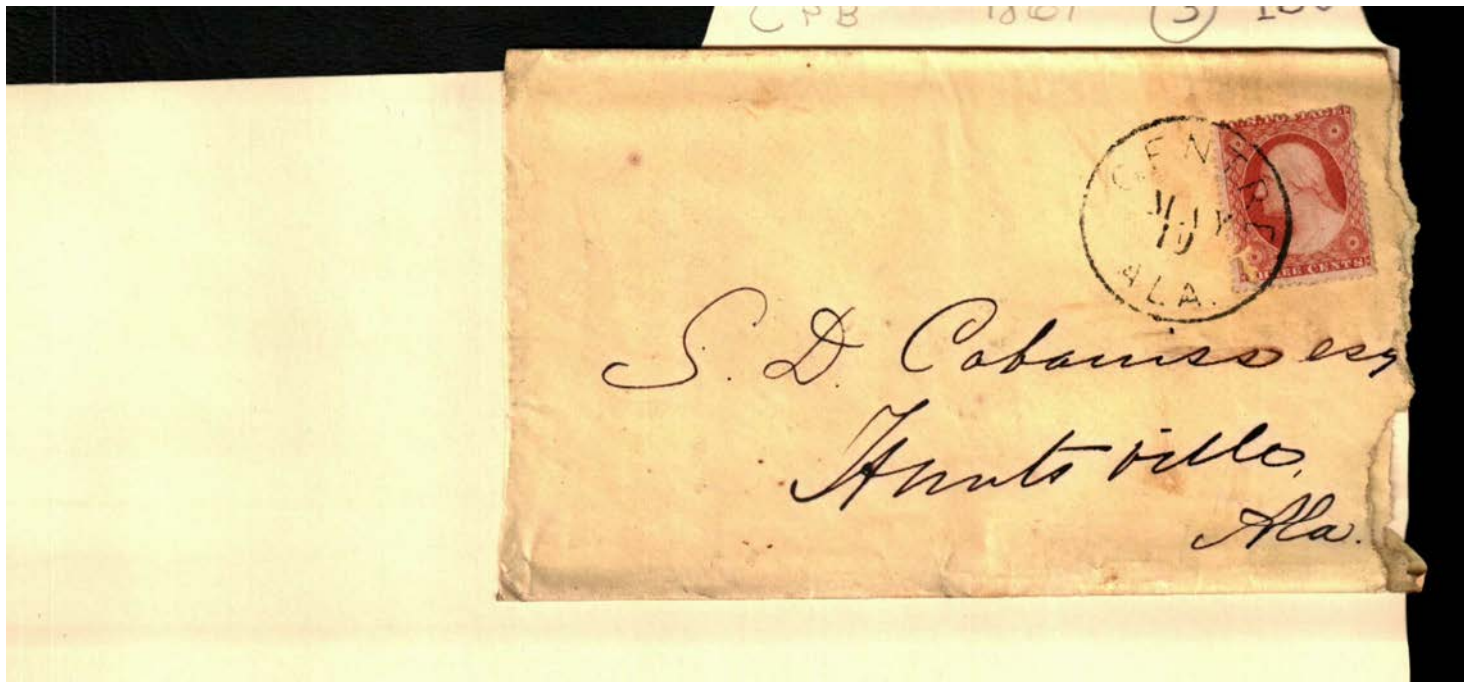 CPB 1861 (3)
CENTRE
MAY
ALA.
THREE CENTS
S. D. Cabaniss esq
Huntsville,
Ala.